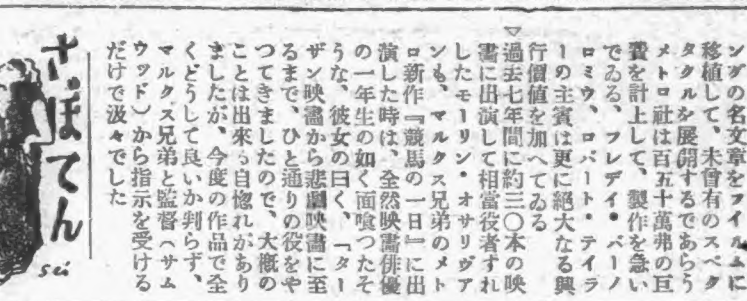 ングの名文章をフイルムに
移植して、未曾有のスペク
タクルを展開するであらう
メトロ社は百五十萬弗の巨
費を計上して、製作を急い
でゐる、フレデイ・バーノ
ロミウ、ロバート・テイラ
ーの主賓は更に絶大なる興
行價値を加へてゐる
▽過去七年間に約三〇本の映
畫に出演して相當役者ずれ
したモーリン・オサリヴア
ンも、マルクス兄弟のメト
ロ新作『競馬の一日』に出
演した時は、全然映畫俳優
の一年生の如く面喰つたそ
うな、彼女の曰く、「ター
ザン映畫から悲劇映畫に至
るまで、ひと通りの役をや
つてきましたので、大概の
ことは出來る自惚れがあり
ましたが、今度の作品で全
くどうして良いか判らず、
マルクス兄弟と監督(サム
ウッド)から指示を受ける
だけで汲々でした
さぼてん
sei